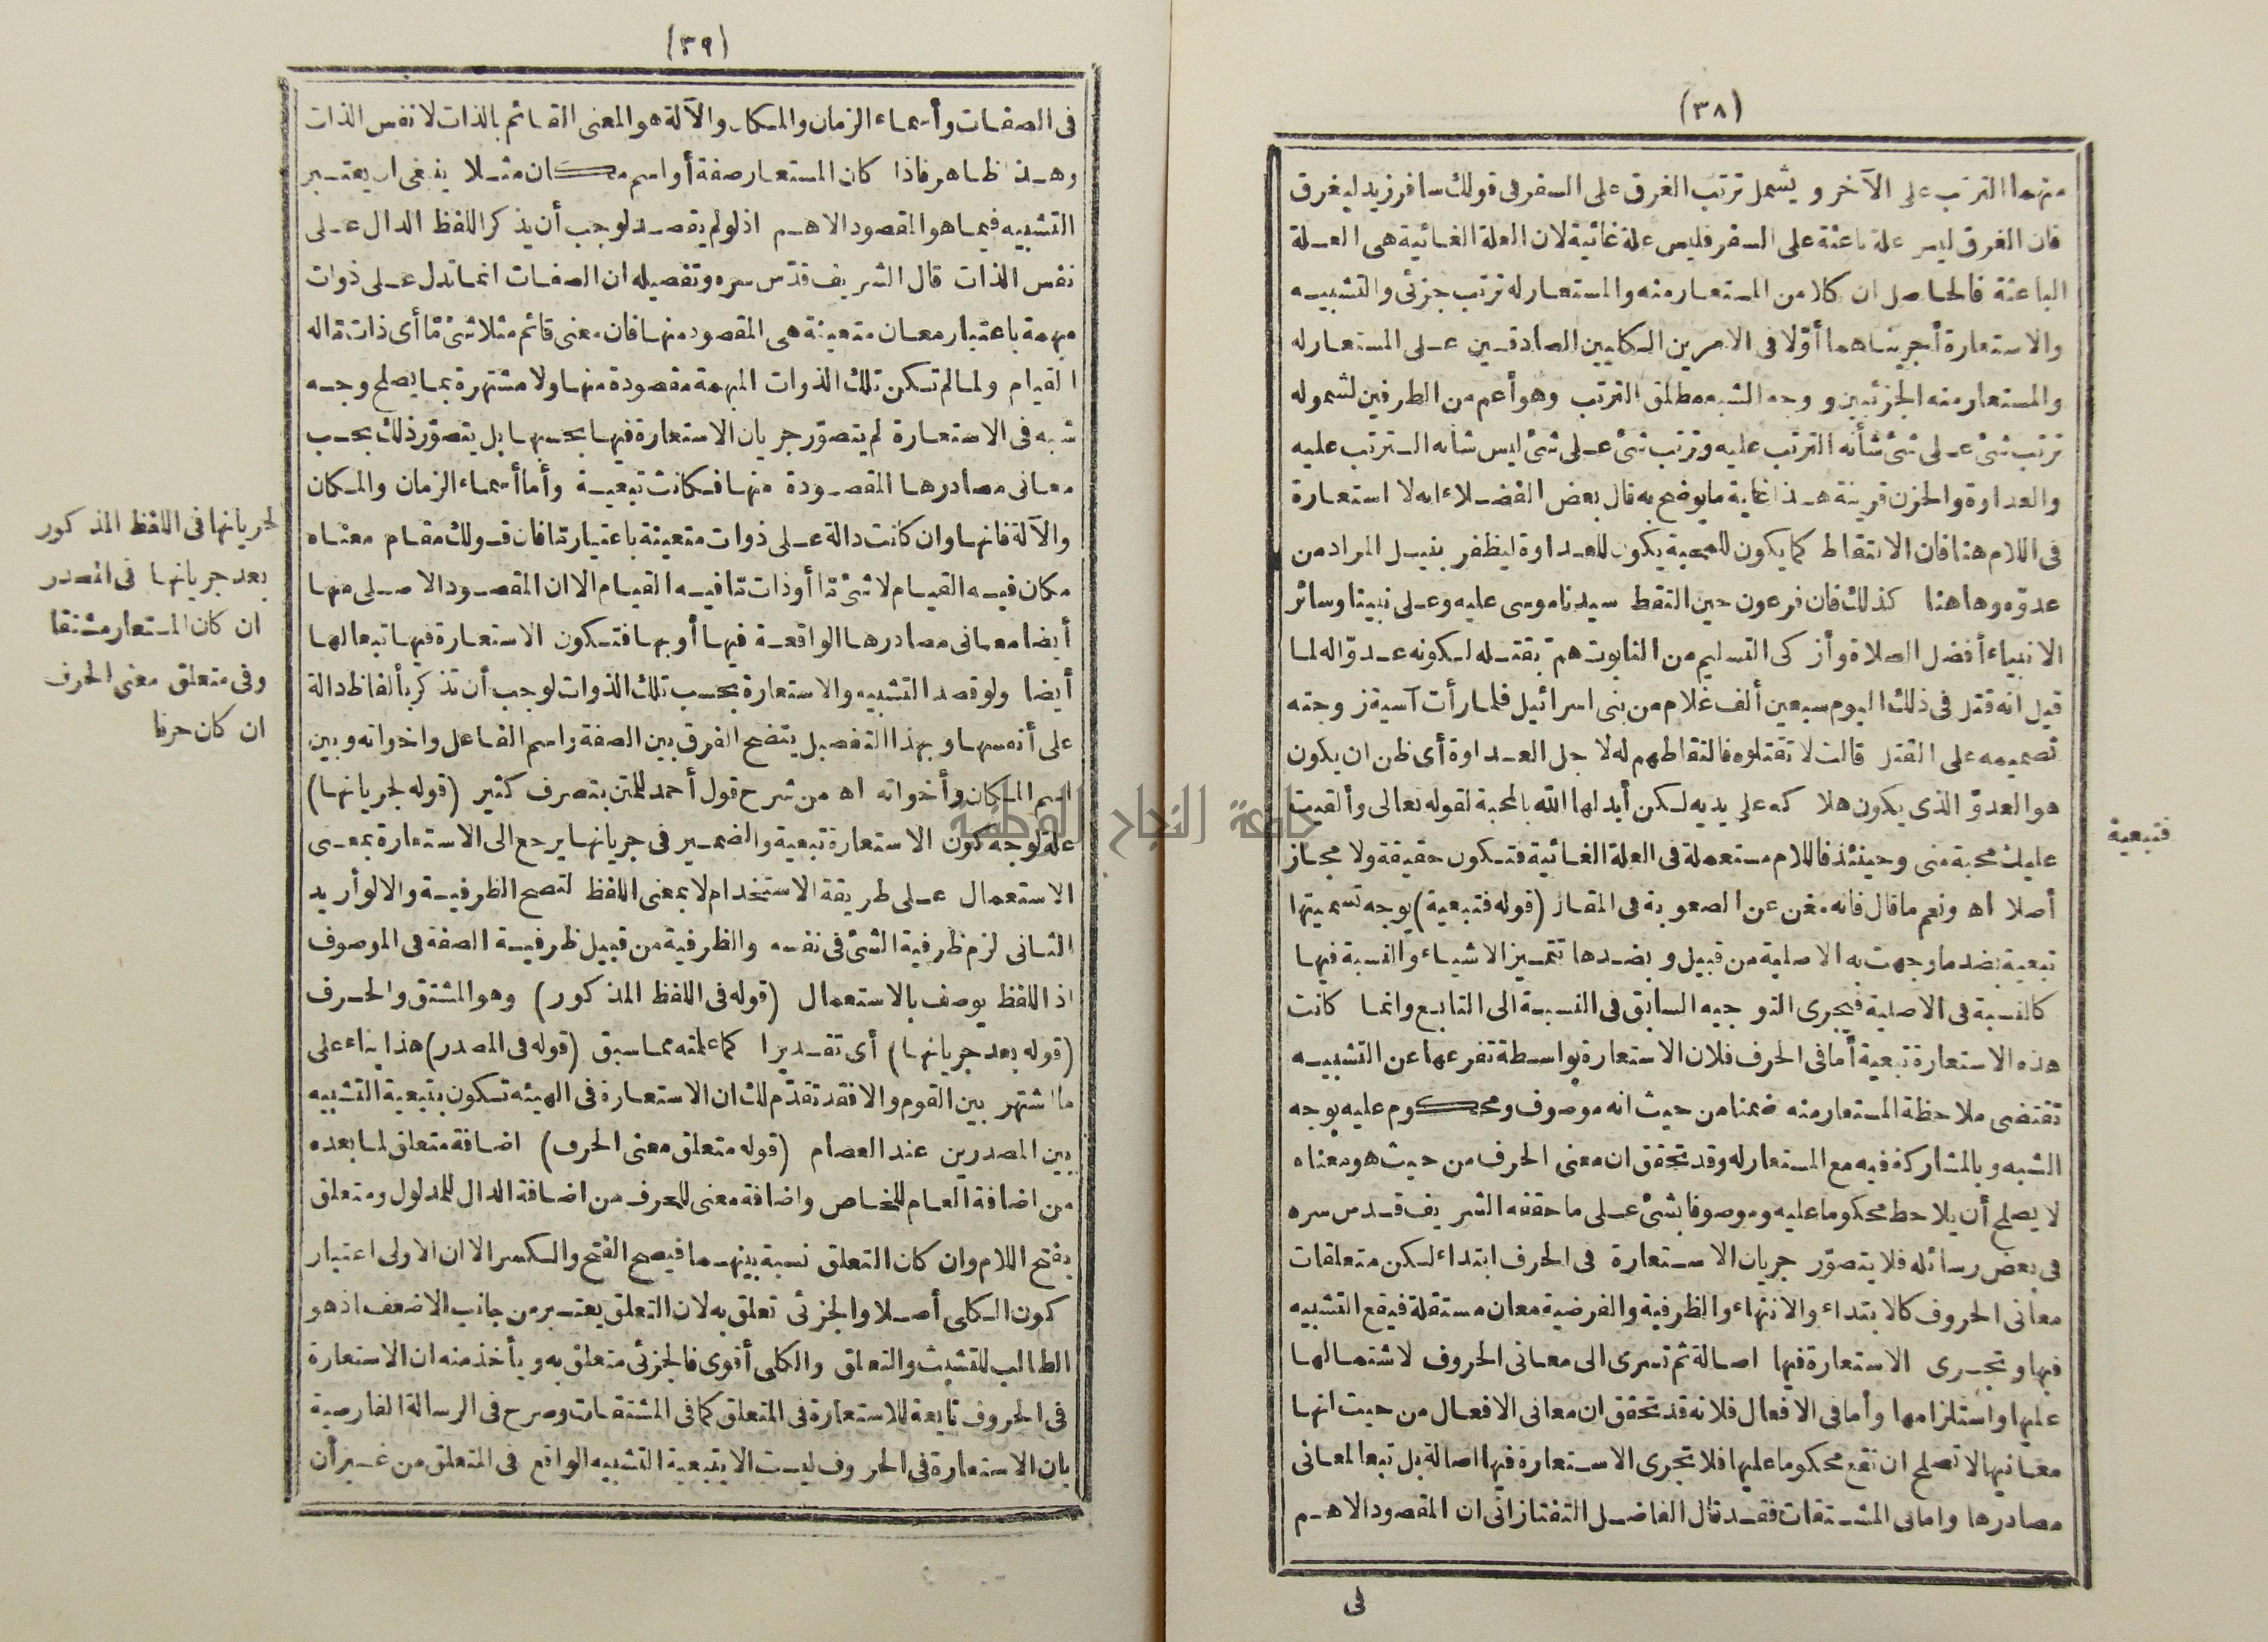 (٣٨)
منهما الترتب على الآخر ويشمل ترتب الغرق على السفر في قولك سافر زيد ليغرق
فان الغرق ليس علة باعثة على السفر فليس علة غائية لان العلة الغائية هي العلة
الباعثة فالحاصل ان كلا من المستعار منه والمستعار له ترتب جزئى والتشبيه
والاستعارة أجريناهما أوّلا فى الامرين الكليين الصادقين على المستعار له
والمستعار منه الجزئيين ووجه الشبه مطلق الترتب وهو أعم من الطرفين لشموله
ترتب شئ على شئ شأنه الترتب عليه وترتب شئ على شئ ليس شأنه الترتب عليه
والعداوة والحزن قرينة هذا غاية ما يوضح به قال بعض الفضلاء انه لا استعارة
فى اللام هنا فان الالتقاط كما يكون للمحبة يكون للعداوة ليظفر بنيل المراد من
عدوّه وهاهنا كذلك فان فرعون حين التقط سيدنا موسى عليه وعلى نبينا وسائر
الانبياء أفضل الصلاة وأزكى التسليم من التابوت هم بقتله لكونه عدوّا له لما
قيل انه قتل فى ذلك اليوم سبعين ألف غلام من بنى اسرائيل فلما رأت آسية زوجته
تصميمه على القتل قالت لا تقتلوه فالتقاطهم له لاجل العداوة أى ظن ان يكون
هو العدوّ الذى يكون هلاكه على يديه لكن أبدلها الله بالمحبة لقوله تعالى وألقيت
عليك محبة منى وحينئذ فاللام مستعملة فى العلة الغائية فتكون حقيقة ولا مجاز
أصلا اه ونعم ما قال فانه مغن عن الصعوبة فى المقال (قوله فتبعية) يوجه تسميتها
تبعية بضد ما وجهت به الاصلية من قبيل وبضدها تتميز الاشياء والنسبة فيها
كالنسبة فى الاصلية فيجرى التوجيه السابق فى النسبة الى التابع وانما كانت
هذه الاستعارة تبعية أما فى الحرف فلان الاستعارة بواسطة تفرعها عن التشبيه
تقتضى ملاحظة المستعار منه ضمنا من حيث انه موصوف ومحكوم عليه بوجه
الشبه وبالمشاركة فيه مع المستعار له وقد تحقق ان معنى الحرف من حيث هو معناه
لا يصلح أن يلاحظ محكوما عليه وموصوفا بشئ على ما حققه الشريف قدس سره
فى بعض رسائله فلا يتصوّر جريان الاستعارة فى الحرف ابتداء لكن متعلقات
معانى الحروف كالابتداء والانتهاء والظرفية والفرضية معان مستقلة فيقع التشبيه
فيها وتجرى الاستعارة فيها اصالة ثم تسرى الى معانى الحروف لاشتمالها
عليها واستلزامها وأما فى الافعال فلانه قد تحقق ان معانى الافعال من حيث انها
معانيها لا تصلح ان تقع محكوما عليها فلا تجرى الاستعارة فيها اصالة بل تبعا لمعانى
مصادرها واما فى المشتقات فقد قال الفاضل التفتازانى ان المقصود الاهم
فى
فتبعية
(٣٩)
فى الصفات وأسماء الزمان والمكان والآلة هو المعنى القائم بالذات لا نفس الذات
وهذا ظاهر فاذا كان المستعار صفة أو اسم مكان مثلا ينبغى ان يعتبر
التشبيه فيما هو المقصود الاهم اذ لو لم يقصد لوجب أن يذكر اللفظ الدال على
نفس الذات قال الشريف قدّس سره وتفصيله ان الصفات انما تدل على ذوات
مبهمة باعتبار معان متعينة هى المقصود منها فان معنى قائم مثلا شئ مّا أى ذات ما له
القيام ولما لم تكن تلك الذوات المبهمة مقصودة منها ولا مشتهرة بما يصلح وجه
شبه فى الاستعارة لم يتصوّر جريان الاستعارة فيها بحسبها بل يتصوّر ذلك بحسب
معانى مصادرها المقصودة منها فكانت تبعية وأما أسماء الزمان والمكان
والآلة فانها وان كانت دالة على ذوات متعينة باعتبار ما فان قولك مقام معناه
مكان فيه القيام لا شئ مّا أو ذات مّا فيه القيام الا ان المقصود الاصلى منها
أيضا معانى مصادرها الواقعة فيها أو بها فتكون الاستعارة فيها تبعا لها
أيضا ولو قصد التشبيه والاستعارة بحسب تلك الذوات لوجب أن تذكر بألفاظ دالة
على أنفسها وبهذا التفصيل يتضح الفرق بين الصفة واسم الفاعل واخواته وبين
اسم المكان وأخواته اه من شرح قول أحمد للمتن بتصرف كثير (قوله لجريانها)
علة لوجه كون الاستعارة تبعية والضمير فى جريانها يرجع الى الاستعارة بمعنى
الاستعمال على طريقة الاستخدام لا بمعنى اللفظ لتصح الظرفية والا لو أريد
الثانى لزم ظرفية الشئ فى نفسه والظرفية من قبيل ظرفية الصفة فى الموصوف
اذ اللفظ يوصف بالاستعمال (قوله فى اللفظ المذكور) وهو المشتق والحرف
(قوله بعد جريانها) أى تقديرا كما علمته مما سبق (قوله فى المصدر) هذا بناء على
ما اشتهر بين القوم والا فقد تقدّم لك ان الاستعارة فى الهيئة تكون بتبعية التشبيه
بين المصدرين عند العصام (قوله متعلق معنى الحرف) اضافة متعلق لما بعده
من اضافة العام للخاص واضافة معنى للحرف من اضافة الدال للمدلول ومتعلق
بفتح اللام وان كان التعلق نسبة بينهما فيصح الفتح والكسر الا ان الاولى اعتبار
كون الكلى أصلا والجزئى تعلق به لان التعلق يعتبر من جانب الاضعف اذ هو
الطالب للتشبث والتعلق والكلى أقوى فالجزئى متعلق به ويأخذ منه ان الاستعارة
فى الحروف تابعة للاستعارة فى المتعلق كما فى المشتقات وصرح فى الرسالة الفارسية
بان الاستعارة فى الحروف ليست الا بتبعية التشبيه الواقع فى المتعلق من غير أن
لجريانها فى اللفظ المذكور
بعد جريانها فى المصدر
ان كان المستعار مشتقا
وفى متعلق معنى الحرف
ان كان حرفا
جامعة النجاح الوطنية